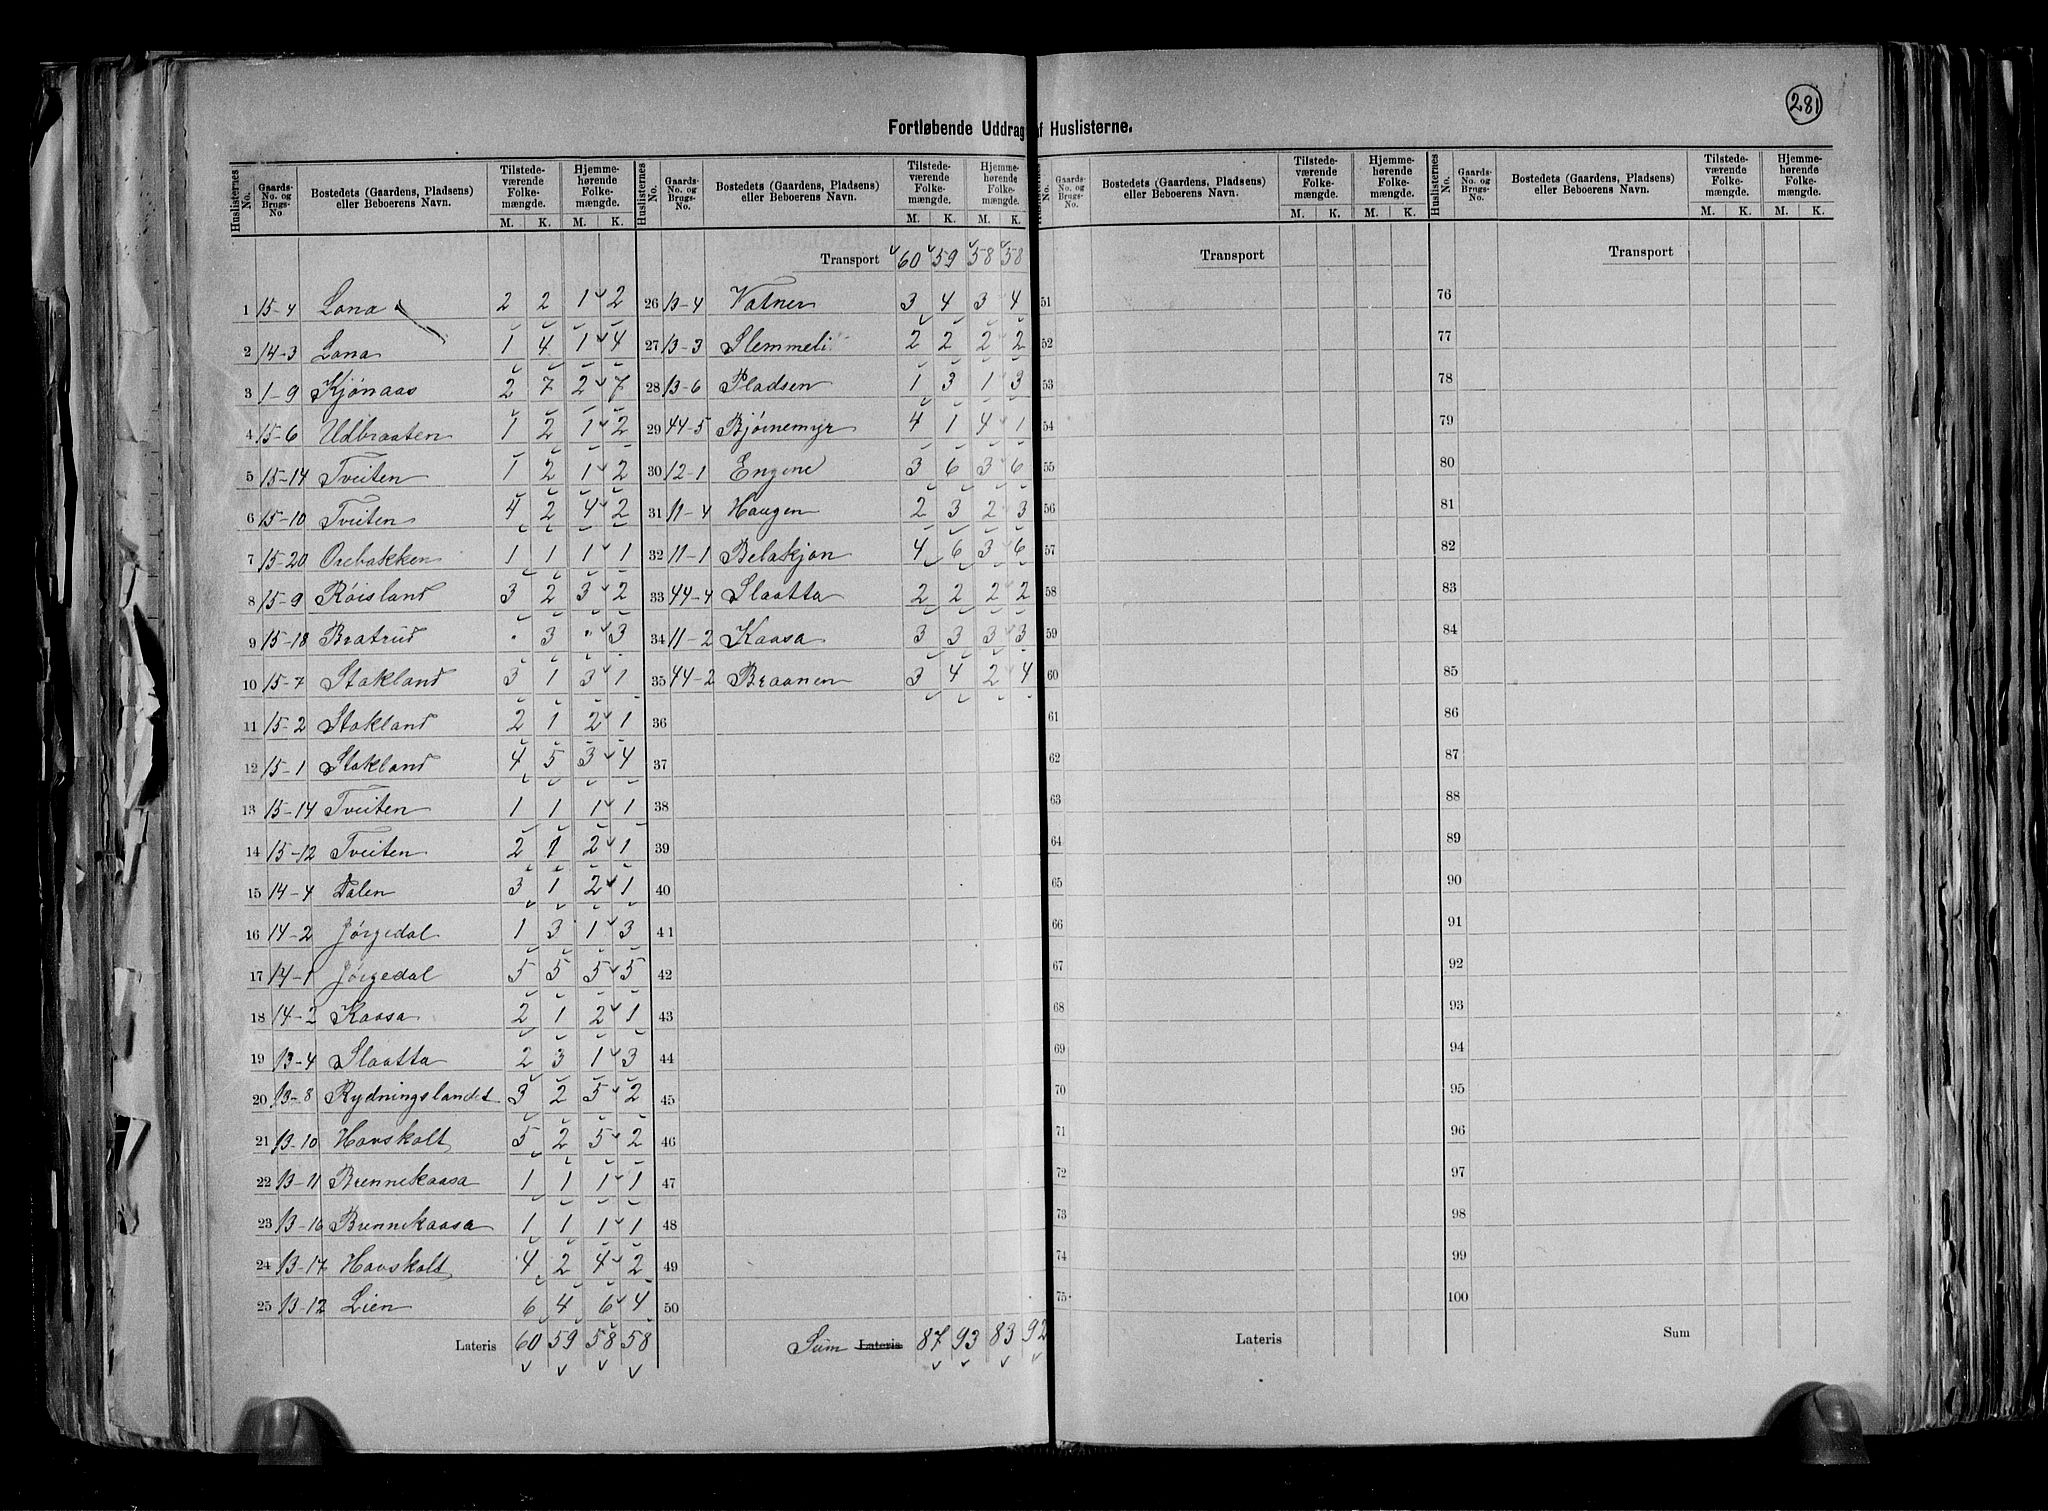 281
Fortløbende Uddrag af Huslisterne.
Huslisternes No. Gaards-No. og Brugs-No Bostedets (Gaardens, Pladsens) eller Beboerens Navn. Tilstedeværende Folkemængde. M. K. Hjemmehørende Folkemængde. M. K.
1 15-4 Lona 2 2 1 2
2 14-3 Lona 1 4 1 4
3 1-9 Kjønaas 2 7 2 7
4 15-6 Udbraaten 1 2 1 2
5 15-14 Tveiten 1 2 1 2
6 15-10 Tveiten 4 2 4 2
7 15-20 Orebakken 1 1 1 1
8 15-9 Røisland 3 2 3 2
9 15-18 Bratrud . 3 . 3
10 15-7 Stakland 3 1 3 1
11 15-2 Stokland 2 1 2 1
12 15-1 Stokland 4 5 3 4
13 15-14 Tveiten 1 1 1 1
14 15-12 Tveiten 2 1 2 1
15 14-4 Dalen 3 1 2 1
16 14-2 Jørgedal 1 3 1 3
17 14-1 Jørgedal 5 5 5 5
18 14-2 Kaasa 2 1 2 1
19 13-4 Slaatta 2 3 1 3
20 13-8 Rydningslandet 3 2 5 2
21 13-10 Havskolt 5 2 5 2
22 13-11 Brennekaasa 1 1 1 1
23 13-16 Brennekaasa 1 1 1 1
24 13-17 Havskolt 4 2 4 2
25 13-12 Lien 6 4 6 4
Lateris 60 59 58 58
Huslisternes No. Gaards-No. og Brugs-No. Bostedets (Gaardens, Pladsens) eller Beboerens Navn. Tilstedeværende Folkemængde. M. K. Hjemmehørende Folkemængde. M. K.
Transport 60 59 58 58
26 13-4 Vatner 3 4 3 4
27 13-3 Slemmeli 2 2 2 2
28 13-6 Pladsen 1 3 1 3
29 44-5 Bjørnemyr 4 1 4 1
30 12-1 Engene 3 6 3 6
31 11-4 Haugen 2 3 2 3
32 11-1 Belaskjon 4 6 3 6
33 44-4 Slaatta 2 2 2 2
34 11-2 Kaasa 3 3 3 3
35 44-2 Braanen 3 4 2 4
36
37
38
39
40
41
42
43
44
45
46
47
48
49
50
Sum Lateris 87 93 83 92
Huslisternes No. Gaards-No. og Brugs-No. Bostedets (Gaardens, Pladsens) eller Beboerens Navn. Tilstedeværende Folkemængde. M. K. Hjemmehørende Folkemængde. M. K.
Transport
51
52
53
54
55
56
57
58
59
60
61
62
63
64
65
66
67
68
69
70
71
72
73
74
75
Lateris
Huslisternes No. Gaards-No. og Brugs-No. Bostedets (Gaardens, Pladsens) eller Beboerens Navn. Tilstedeværende Folkemængde. M. K. Hjemmehørende Folkemængde. M. K.
Transport
76
77
78
79
80
81
82
83
84
85
86
87
88
89
90
91
92
93
94
95
96
97
98
99
100
Sum